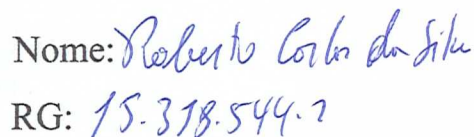 Nome: Roberto Carlos da Silva
RG: 15.318.544.2